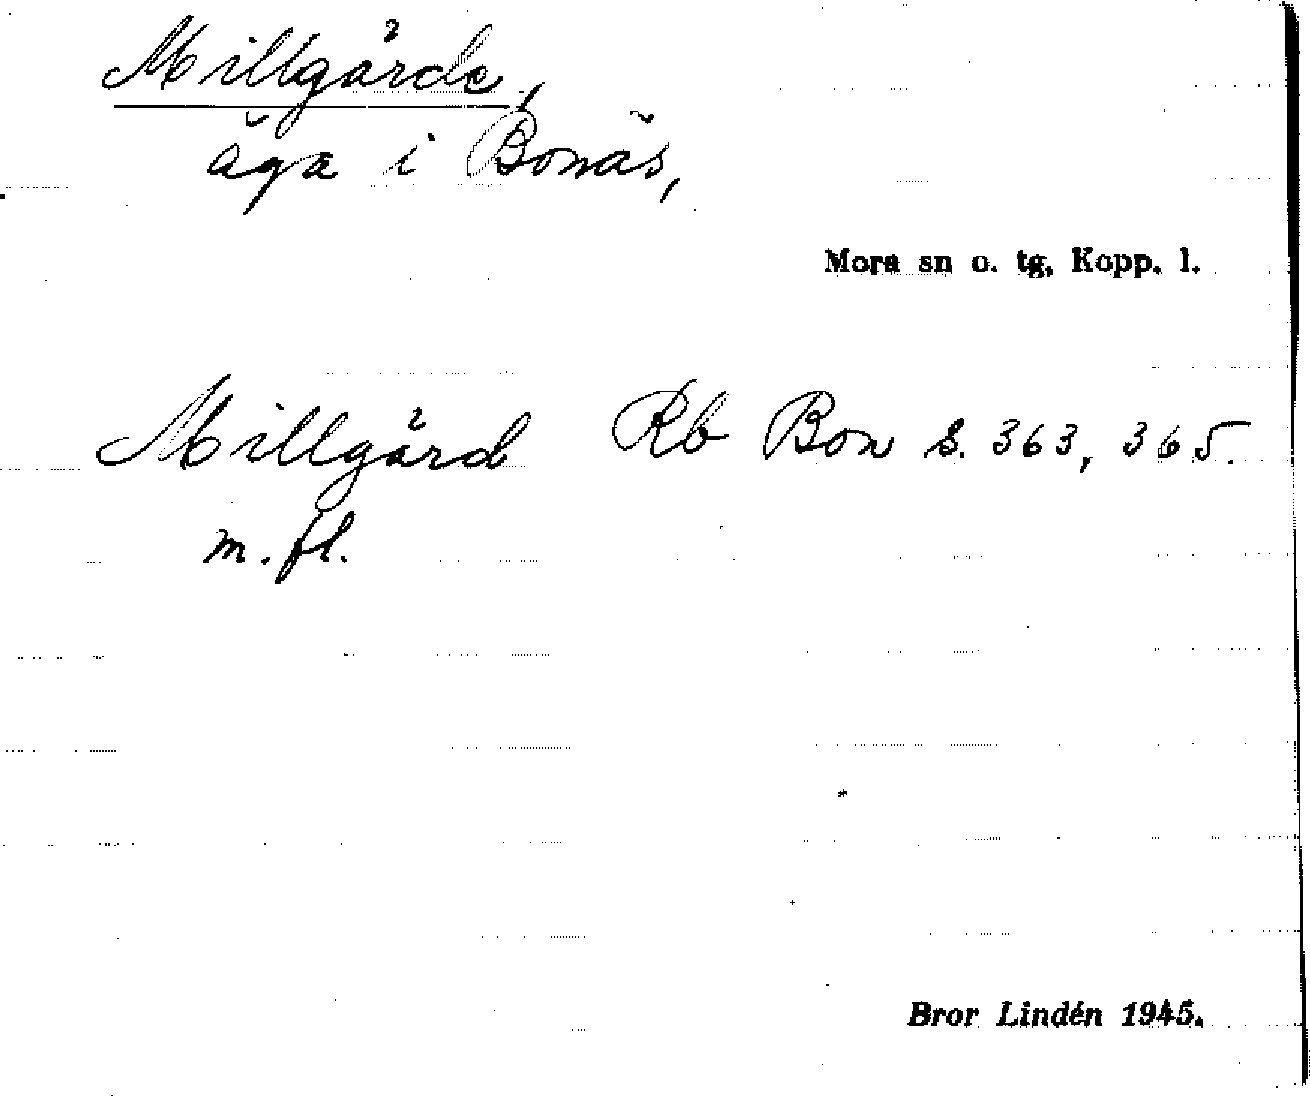 Millgärde,
äga i Bonäs,
Mora sn o. tg, Kopp. l.
Millgård Rb Bon s. 363, 365.
m. fl.
Bror Lindén 1945.